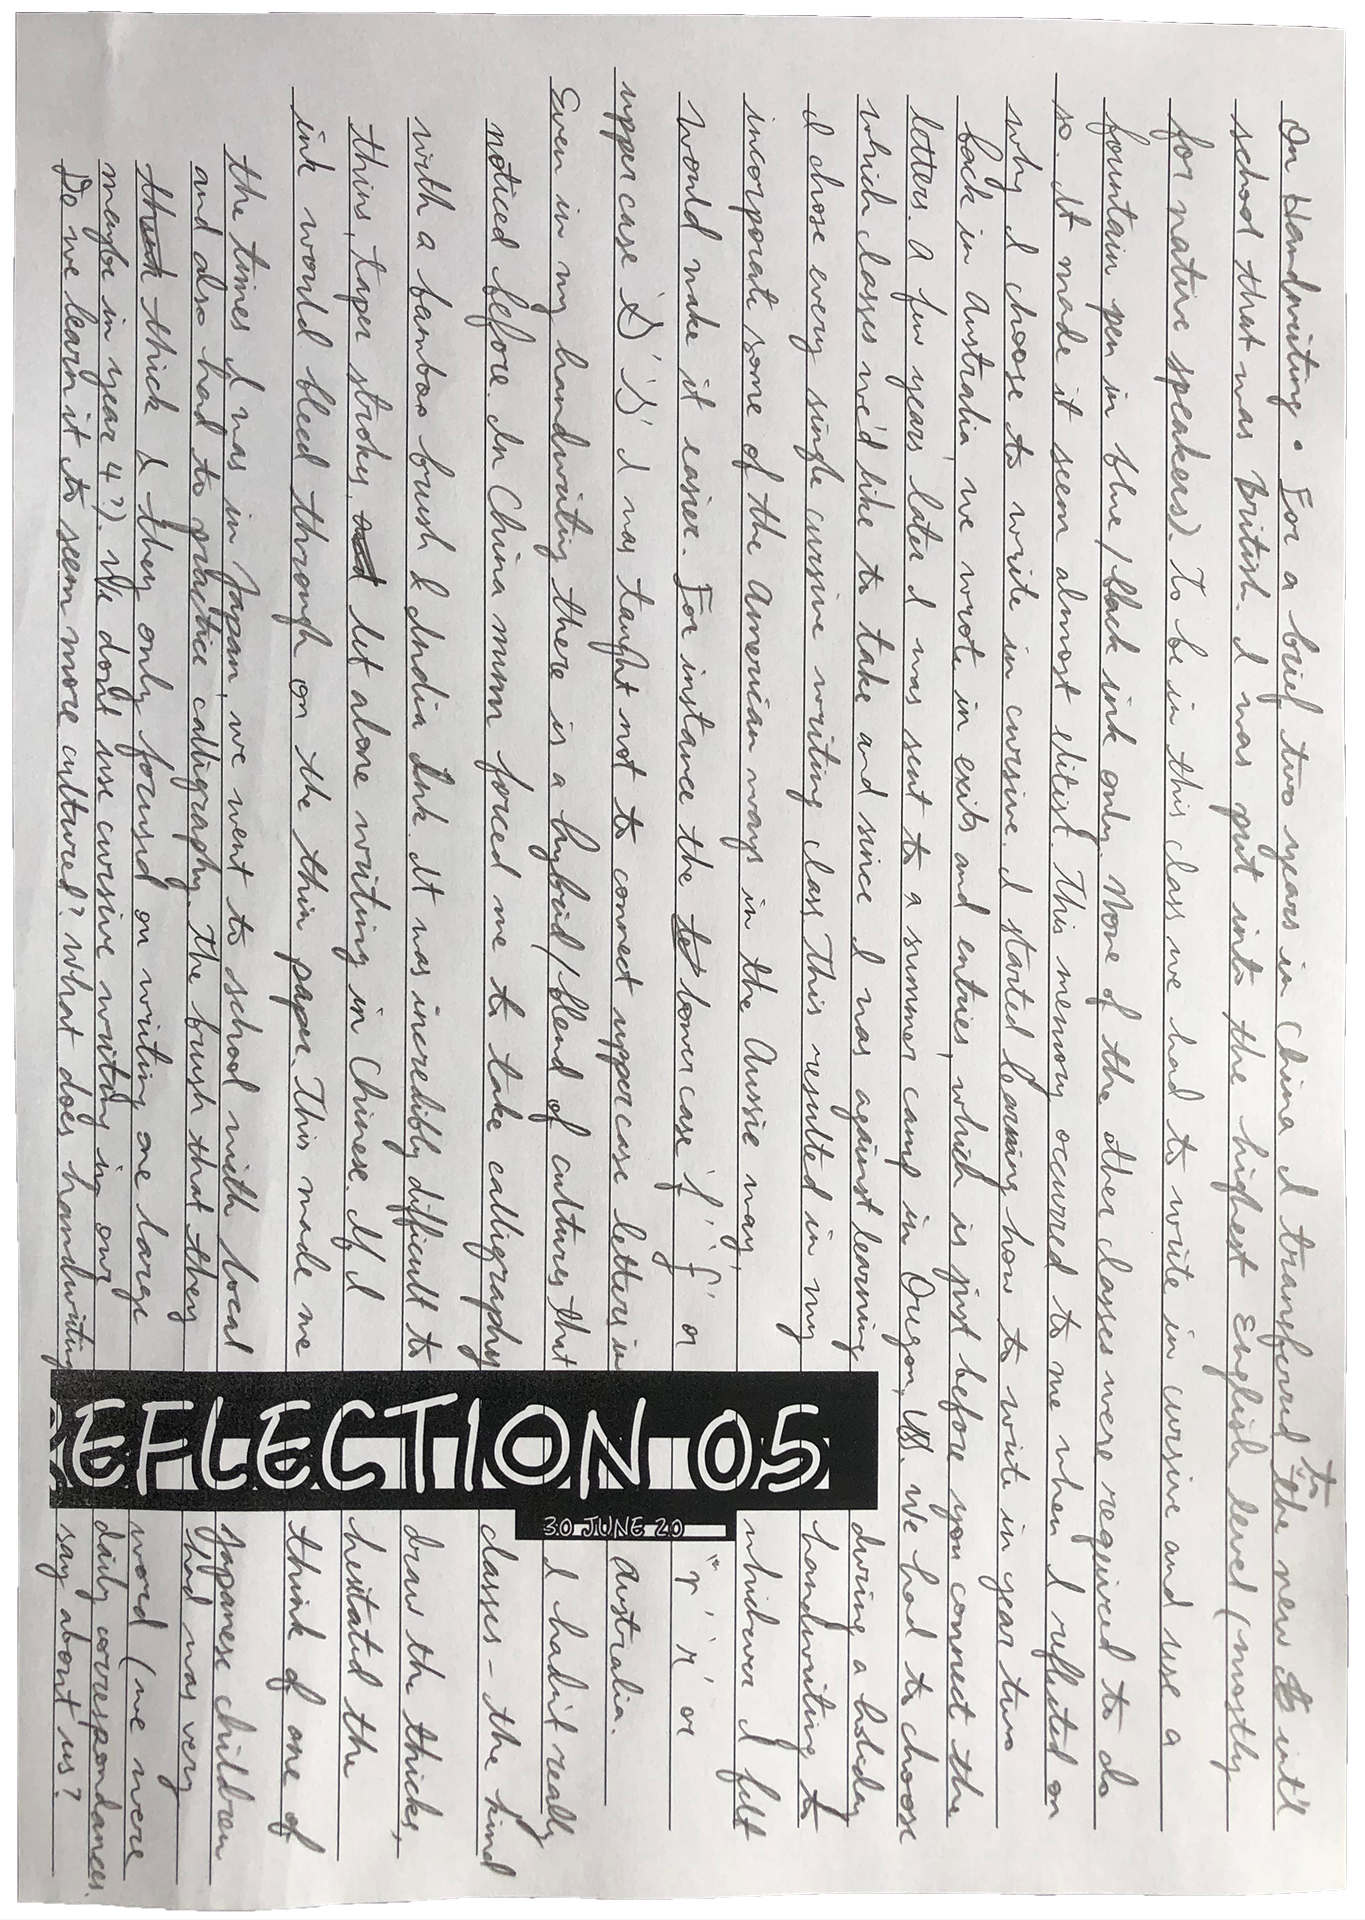 On Handwriting • For a brief two years in China I transferred to the new int'l
school that was British. I was put into the highest English level (mostly
for native speakers). To be in this class we had to write in cursive and use a
fountain pen in blue/black ink only. None of the other classes were required to do
so. It made it seem almost elitist. This memory occurred to me when I reflected on
why I choose to write in cursive. I started learning how to write in year two
back in Australia, we wrote in exits and entries, which is just before you connect the
letters. A few years' later I was sent to a summer camp in Oregon, US. We had to choose
which classes we'd like to take and since I was against learning during a holiday
I chose every single cursive writing class. This resulted in my handwriting to
incorporate some of the American ways in the Aussie way, whichever I felt
would make it easier. For instance the lowercase 'f' 'f' or "r" 'r' or
uppercase 'S' 'S' I was taught not to connect uppercase letters in Australia.
Even in my handwriting there is a hybrid/blend of cultures that I hadn't really
noticed before. In China mum forced me to take calligraphy classes – the kind
with a bamboo brush & India Ink. It was incredibly difficult to draw the thicks,
thins, taper strokes, let alone writing in Chinese. If I hesitated the
ink would bleed through on the thin paper. This made me think of one of
the times I was in Japan, we went to school with local Japanese children
and also had to practice calligraphy. The brush that they had was very
thick & they only focused on writing one large word (we were
maybe in year 4?). We don't use cursive writing in our daily correspondances.
Do we learn it to seem more cultured? What does handwriting say about us?
REFLECTION 05
30 JUNE 20